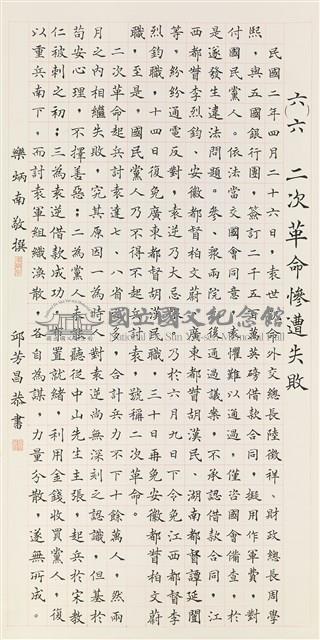 六（六） 二次革命慘遭失敗
民國二年四月二十六日袁世凱命外交總長陸徵祥、財政總長周學
熙，與五國銀行團，簽訂二千五百萬英磅借款合同，擬用作軍費，對
付國民黨人。依法當交國會同意，袁懼難以通過，僅咨國會備查，於
是遂發生違法問題。參、眾兩院先後通過議案，不承認借款合同，江
西都督李烈鈞、安徽都督柏文蔚、廣東都督胡漢民、湖南都督譚延闓
等，紛紛通電反對，袁逆乃大忌恨，乃於六月九日下令免江西都督李
烈鈞職，十四日復免廣東都督胡漢民職，三十日再免安徽都督柏文蔚
職，至是，國民黨人乃不得不起兵討袁，號稱二次革命。
二次革命起兵討袁達七、八省之多，合計兵力不下十餘萬人，然兩
月之內相繼失敗，究其原因一為時人對袁逆尚無深刻之認識，但基於
苟安心理，不擇善惡；二為黨人未能聽從中山先生主張，起兵於宋教
仁被刺之初；三為袁逆借款成功，布置就緒，利用金錢收買黨人，復
以重兵南下，而討袁軍組織渙散，各自為謀，力量分散，遂無所成。
樂炳南敬撰
邱芳昌恭書
國立國父紀念館